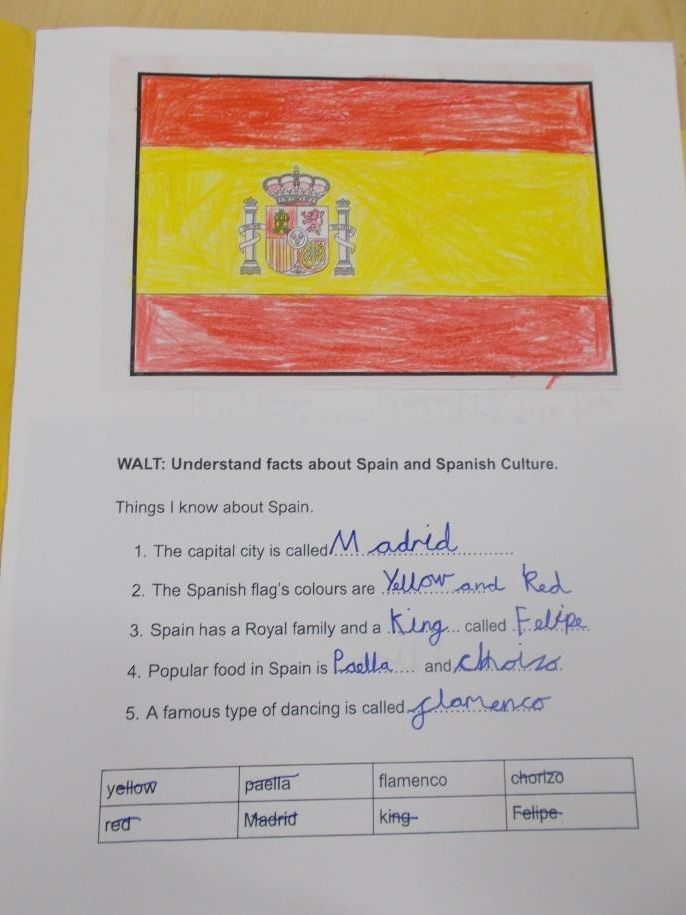 WALT: Understand facts about Spain and Spanish Culture.
Things I know about Spain.
1. The capital city is called Madrid
2. The Spanish flag's colours are Yellow and Red
3. Spain has a Royal family and a King called Felipe
4. Popular food in Spain is Paella and choizo.
5. A famous type of dancing is called flamenco
yellow paella flamenco chorizo
red Madrid king Felipe